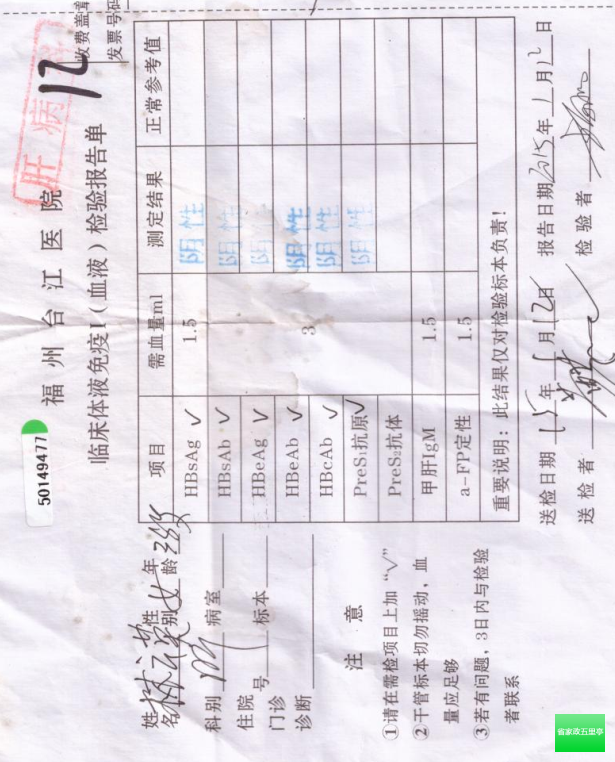 收费盖章
发票号码
肝病
12
50149477
福州台江医院
临床体液免疫I(血液)检验报告单
姓名 性别 女 年龄
科别 病室
住院号 标本
门诊
诊断
注 意
①请在需检项目上加“✓”
②干管标本切勿摇动，血
量应足够
③若有问题，3日内与检验
者联系
项目 需血量ml 测定结果 正常参考值
HBsAg ✓ 1.5 阴性
HBsAb ✓ 3 阴性
HBeAg ✓ 阴性
HBeAb ✓ 阴性
HBcAb ✓ 阴性
PreS₁抗原 ✓ 阴性
PreS₂抗体
甲肝IgM 1.5
a-FP定性 1.5
重要说明：此结果仅对检验标本负责！
送检日期 15年1月12日 报告日期 2015年1月12日
送检者 检验者
省家政五里亭